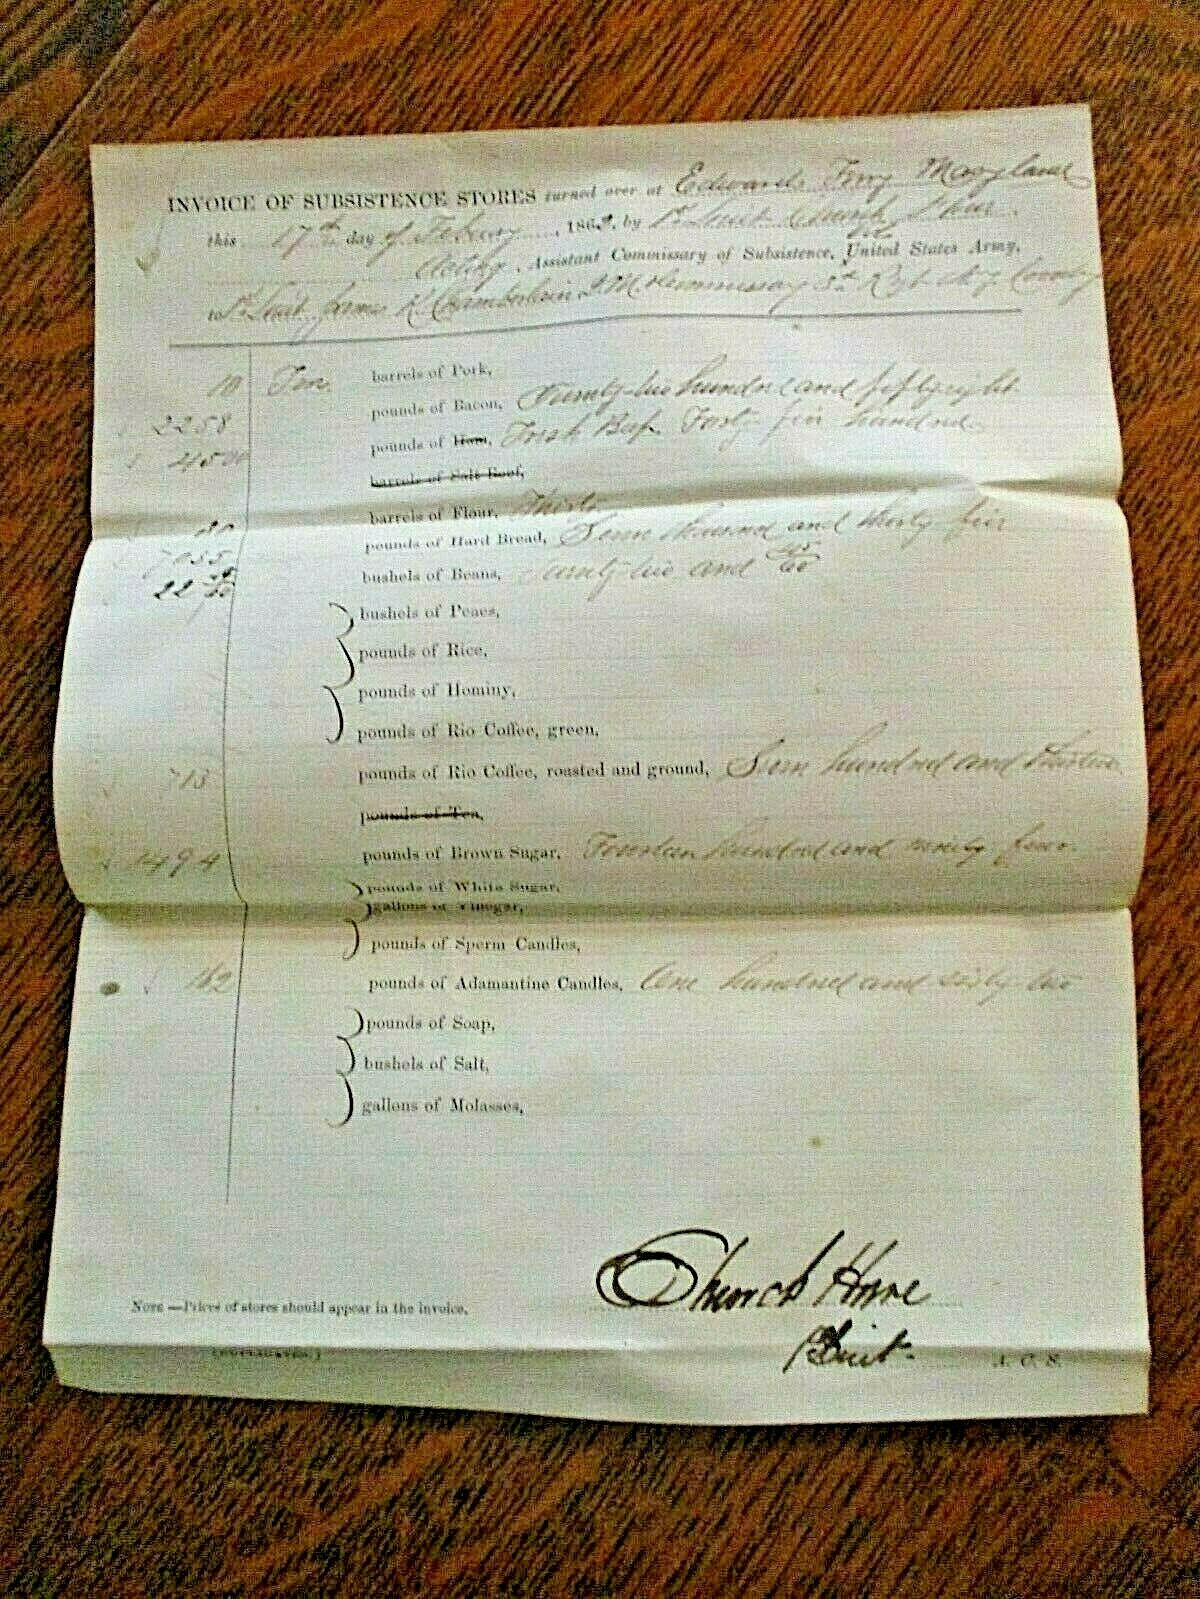 INVOICE OF SUBSISTENCE STORES turned over at Edwards Ferry Maryland
this 17th day of Febury, 1862, by 1st Lieut Church Howe
Acting, Assistant Commissary of Subsistence, United States Army,
to 1st Lieut James K. Chamberlain 3d Regt
10 Ten barrels of Pork,
2258 pounds of Bacon, Twenty-two hundred and fiftyeight
4500 pounds of Ham, Fresh Beef Forty five hundred
barrels of Salt Beef,
30 barrels of Flour, Thirty
7035 pounds of Hard Bread, Seven thousand and thirty five
22 bushels of Beans, Twenty two and
bushels of Peaes,
pounds of Rice,
pounds of Hominy,
pounds of Rio Coffee, green,
713 pounds of Rio Coffee, roasted and ground, Seven hundred and thirteen
pounds of Tea,
1494 pounds of Brown Sugar, Fourteen hundred and ninety four.
pounds of White Sugar,
gallons of Vinegar,
pounds of Sperm Candles,
162 pounds of Adamantine Candles, One hundred and sixty two
pounds of Soap,
bushels of Salt,
gallons of Molasses,
Church Howe
NOTE—Prices of stores should appear in the invoice.
1st Lieut. A. C. S.
(DUPLICATES.)